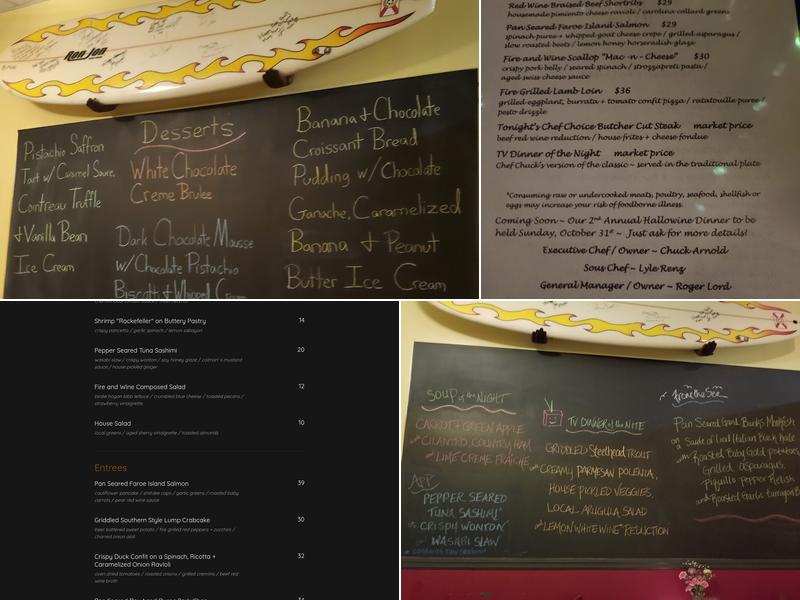 Ron Jon
Pistachio Saffron
Tart w/ Caramel Sauce,
Cointreau Truffle
+ Vanilla Bean
Ice Cream
Desserts
White Chocolate
Creme Brulee
Dark Chocolate Mousse
w/ Chocolate Pistachio
Biscotti + Whipped Cream
Banana & Chocolate
Croissant Bread
Pudding w/ Chocolate
Ganache, Caramelized
Banana & Peanut
Butter Ice Cream
Red Wine Braised Beef Shortribs $29
housemade pimiento cheese ravioli / carolina collard greens
Pan Seared Faroe Island Salmon $29
spinach puree + whipped goat cheese crepe / grilled asparagus /
slow roasted beets / lemon honey horseradish glaze
Fire and Wine Scallop "Mac -n- Cheese" $30
crispy pork belly / seared spinach / strozzapreti pasta /
aged swiss cheese sauce
Fire Grilled Lamb Loin $36
grilled eggplant, burrata + tomato confit pizza / ratatouille puree /
pesto drizzle
Tonight's Chef Choice Butcher Cut Steak market price
beef red wine reduction / house frites + cheese fondue
TV Dinner of the Night market price
Chef Chuck's version of the classic ~ served in the traditional plate
*Consuming raw or undercooked meats, poultry, seafood, shellfish or
eggs may increase your risk of foodborne illness.
Coming Soon ~ Our 2nd Annual Hallowine Dinner to be
held Sunday, October 31st ~ Just ask for more details!
Executive Chef / Owner ~ Chuck Arnold
Sous Chef ~ Lyle Renz
General Manager / Owner ~ Roger Lord
Shrimp "Rockefeller" on Buttery Pastry 14
crispy pancetta / garlic spinach / lemon sabayon
Pepper Seared Tuna Sashimi 20
wasabi slaw / crispy wonton / soy honey glaze / colman's mustard
sauce / house pickled ginger
Fire and Wine Composed Salad 12
birdie hogan bibb lettuce / crumbled blue cheese / toasted pecans /
strawberry vinaigrette
House Salad 10
local greens / aged sherry vinaigrette / toasted almonds
Entrees
Pan Seared Faroe Island Salmon 39
cauliflower pancake / shiitake caps / garlic greens / roasted baby
carrots / pear red wine sauce
Griddled Southern Style Lump Crabcake 30
beer battered sweet potato / fire grilled red peppers + zucchini /
charred onion aioli
Crispy Duck Confit on a Spinach, Ricotta + 32
Caramelized Onion Ravioli
oven dried tomatoes / roasted onions / grilled cremini / beef red
wine broth
SOUP of the NIGHT
CARROT + GREEN APPLE
w/ CILANTRO, COUNTRY HAM
+ LIME CREME FRAICHE
APP
PEPPER SEARED
TUNA SASHIMI*
w/ CRISPY WONTON
w/ WASABI SLAW
TV DINNER of the NITE
GRIDDLED Steelhead TROUT
w/ CREAMY PARMESAN POLENTA,
HOUSE PICKLED VEGGIES,
LOCAL ARUGULA SALAD
w/ LEMON WHITE WINE REDUCTION
from the Sea
Pan Seared Grand Banks Monkfish
on Saute of Local Italian Black Kale
w/ Roasted Baby Gold Potatoes,
Grilled Asparagus,
Piquillo Pepper Relish
and Roasted Garlic Tarragon